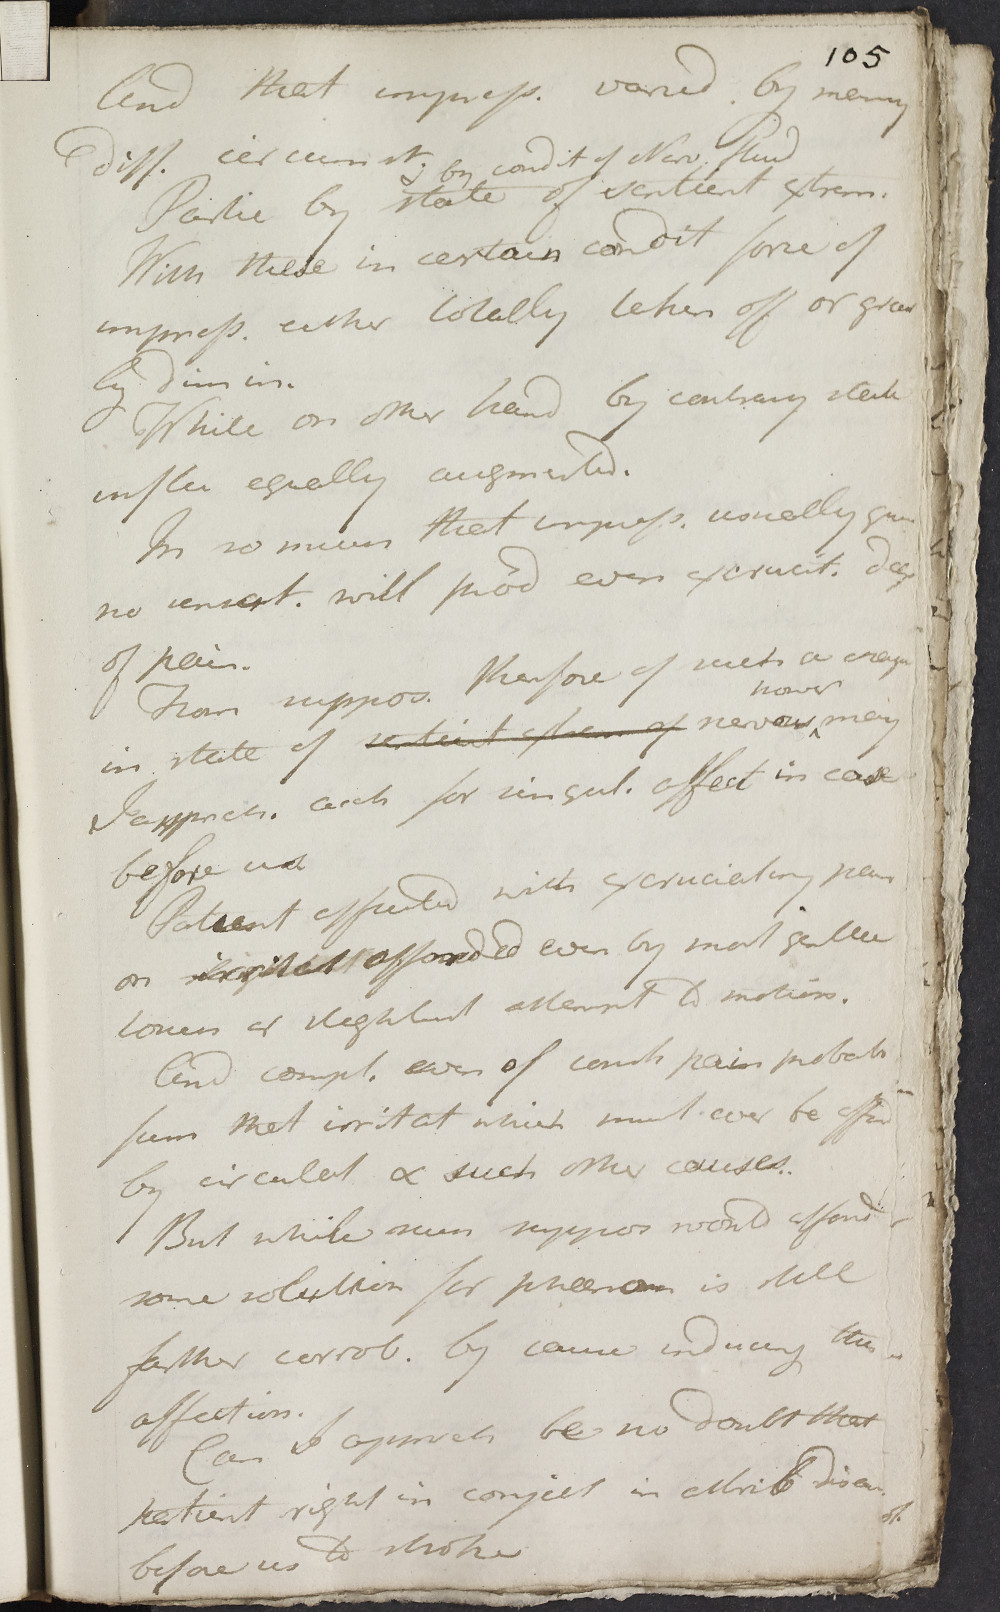 105
And that impress. varied by many
diff. circumst. by condit of Nerv. fluid
Partic by state of sentient extrem.
With these in certain condit force of
impress. either totally taken off or great
ly dimin.
While on other hand by contrary state
influ equally augmented.
In so much that impress. usually giv
no sensat. will prod even excruciat. deg
of pain.
From suppos. therfore of such a change
in state of sentient extrem of nervous power may
I appreh. acct for singul. affect in case
before us
Patient affected with excruciating pain
on afforded even by most gentle
touch or slightest attempt to motion.
And compl. even of const pain probab
from that irritat which must ever be affor
by circulat & such other causes.
But while such suppos would afford
some solution for phenom is still
farther corrob. by cause inducing this
affection.
Can I appreh be no doubt that
patient right in conject in attrib diseas
before us to stroke